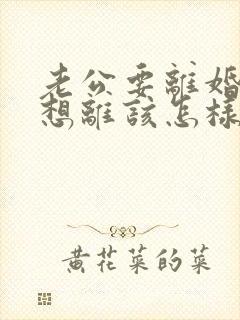 老公要離婚
想離該怎樣
黄花菜的菜